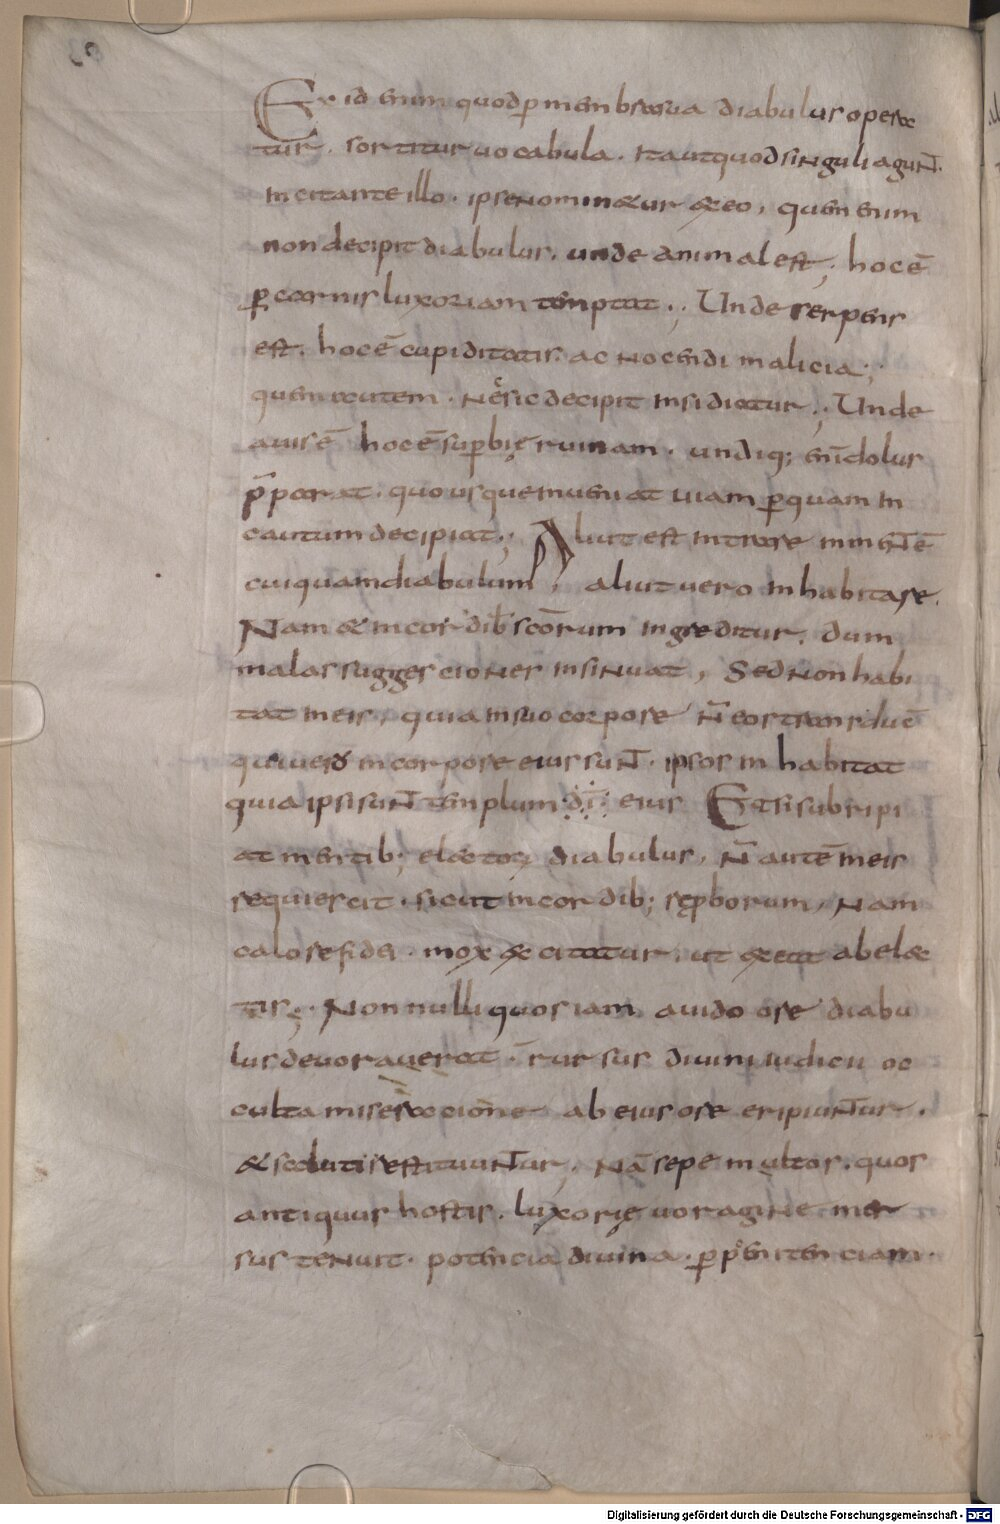 Ex id enim quod p̄ membrorum diabulus opera
tur. sortitur uocabula. Ita ut quod singuli agunt.
incitante illo. ipse nominetur ex eo, quem enim
non decipit diabulus. unde animal est; hoc ē
p̄ carnis luxoriam temptat.; Unde serpens
est. hoc ē cupiditatis. ac nocendi malicia.;
quem autem. nec sic decipit insidiatur.; Unde
auis ē hoc ē sup̄bię ruinam. undiq; enī dolus
p̄parat. quousque inueniat uiam p̄ quam in
cautum decipiat.; Aliut est intrare in mentē
cuiquam diabulum, aliut uero inhabitare.
Nam & in cordib; scōrum ingreditur. dum
malas suggesciones insinuat, Sed non habi
tat in eis, quia in suo corpore n̄ eos transducē
qui uero in corpore eius sunt. ipsos inhabitat
quia ipsi sunt templum dī eius Etsi subripi
at mentib; electorum diabulus, n̄ autē in eis
requiescit. sicut in cordib; rep̄borum, Nam
calore fidei. mox excitatur. ut exeat ab elec
tis; Nonnulli quos iam auido ore diabu
lus deuorauerat. rursus diuini iudicii oc
culta miseracione ab eius ore eripiuntur.
& saluti restituuntur, Nā sepe multos. quos
antiquus hostis. luxorię uoragine mer
sus tenuit. potencia diuina. p̄ penitenciam.
Digitalisierung gefördert durch die Deutsche Forschungsgemeinschaft - DFG